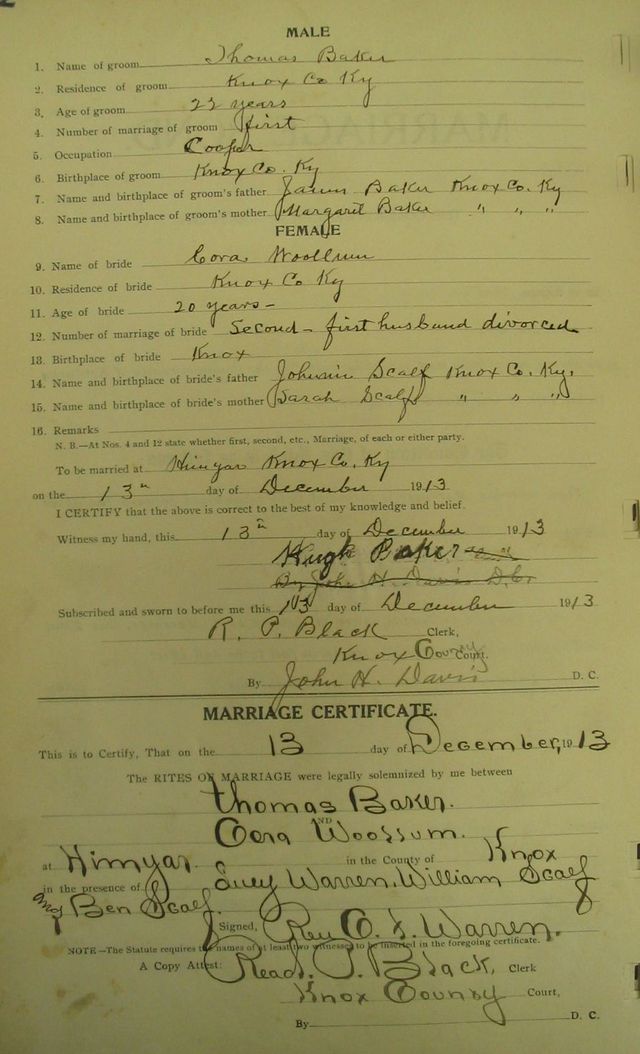 MALE
1. Name of groom Thomas Baker
2. Residence of groom Knox Co Ky
3. Age of groom 22 years
4. Number of marriage of groom first
5. Occupation Cooper
6. Birthplace of groom Knox Co. Ky
7. Name and birthplace of groom's father Baker Knox Co. Ky
8. Name and birthplace of groom's mother Margaret Baker " " "
FEMALE
9. Name of bride Cora Woollum
10. Residence of bride Knox Co Ky
11. Age of bride 20 years-
12. Number of marriage of bride Second - first husband divorced
13. Birthplace of bride Knox
14. Name and birthplace of bride's father Scalf Knox Co. Ky.
15. Name and birthplace of bride's mother Sarah Scalf " " "
16. Remarks
N. B.—At Nos. 4 and 12 state whether first, second, etc., Marriage, of each or either party.
To be married at Himyar Knox Co. Ky
on the 13th day of December 1913
I CERTIFY that the above is correct to the best of my knowledge and belief.
Witness my hand, this 13th day of December 1913
Hugh Baker
By John H. Davis D.C.
Subscribed and sworn to before me this 13 day of December 1913
R. P. Black Clerk,
Knox County Court.
By John H. Davis D. C.
MARRIAGE CERTIFICATE.
This is to Certify, That on the 13 day of December, 1913
The RITES OF MARRIAGE were legally solemnized by me between
Thomas Baker.
AND
Cora Woossum.
at Himyar. in the County of Knox
in the presence of Warren, William Scalf
and Ben Scalf.
Signed, Rev Warren.
NOTE—The Statute requires the names of at least two witnesses to be inserted in the foregoing certificate.
A Copy Attest: Read. P. Black, Clerk
Knox County Court,
By D. C.